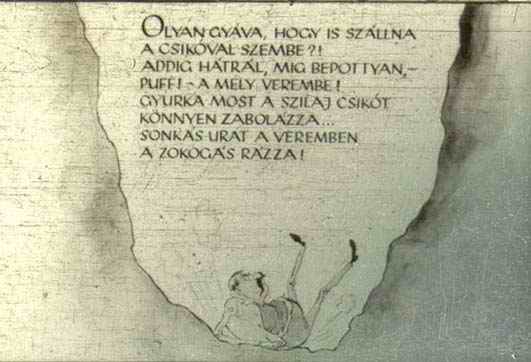 OLYAN GYÁVA, HOGY IS SZÁLLNA
A CSIKÓVAL SZEMBE?!
ADDIG HÁTRÁL, MIG BEPOTTYAN,–
PUFF! – A MÉLY VEREMBE!
GYURKA MOST A SZILAJ CSIKÓT
KÖNNYEN ZABOLÁZZA...
SONKÁS URAT A VEREMBEN
A ZOKOGÁS RÁZZA!